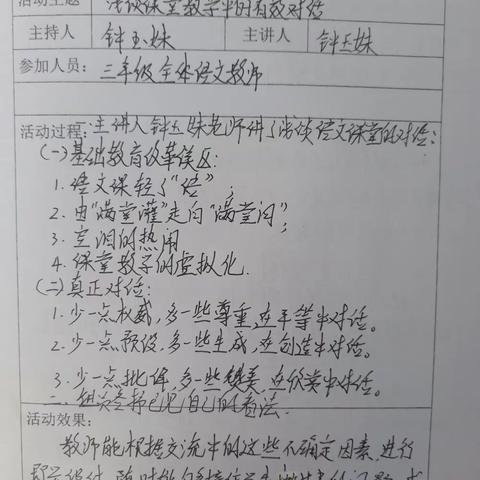 活动主题 浅谈课堂教学中的有效对话
主持人 钟玉妹 主讲人 钟玉妹
参加人员: 三年级全体语文教师
活动过程: 一、主讲人钟玉妹老师讲了浅谈语文课堂的对话:
(一)基础教育改革误区:
1. 语文课轻了“语”;
2. 由“满堂灌”走向“满堂问”;
3. 空泪的热闹
4. 课堂教学的虚拟化.
(二)真正对话:
1. 少一点权威,多一些尊重,在平等中对话。
2. 少一点预设,多一些生成,在创造中对话。
3. 少一点批评,多一些赞美,在欣赏中对话。
二、组员各抒己见自己的看法.
活动效果:
教师能根据交流中的这些不确定因素,进行